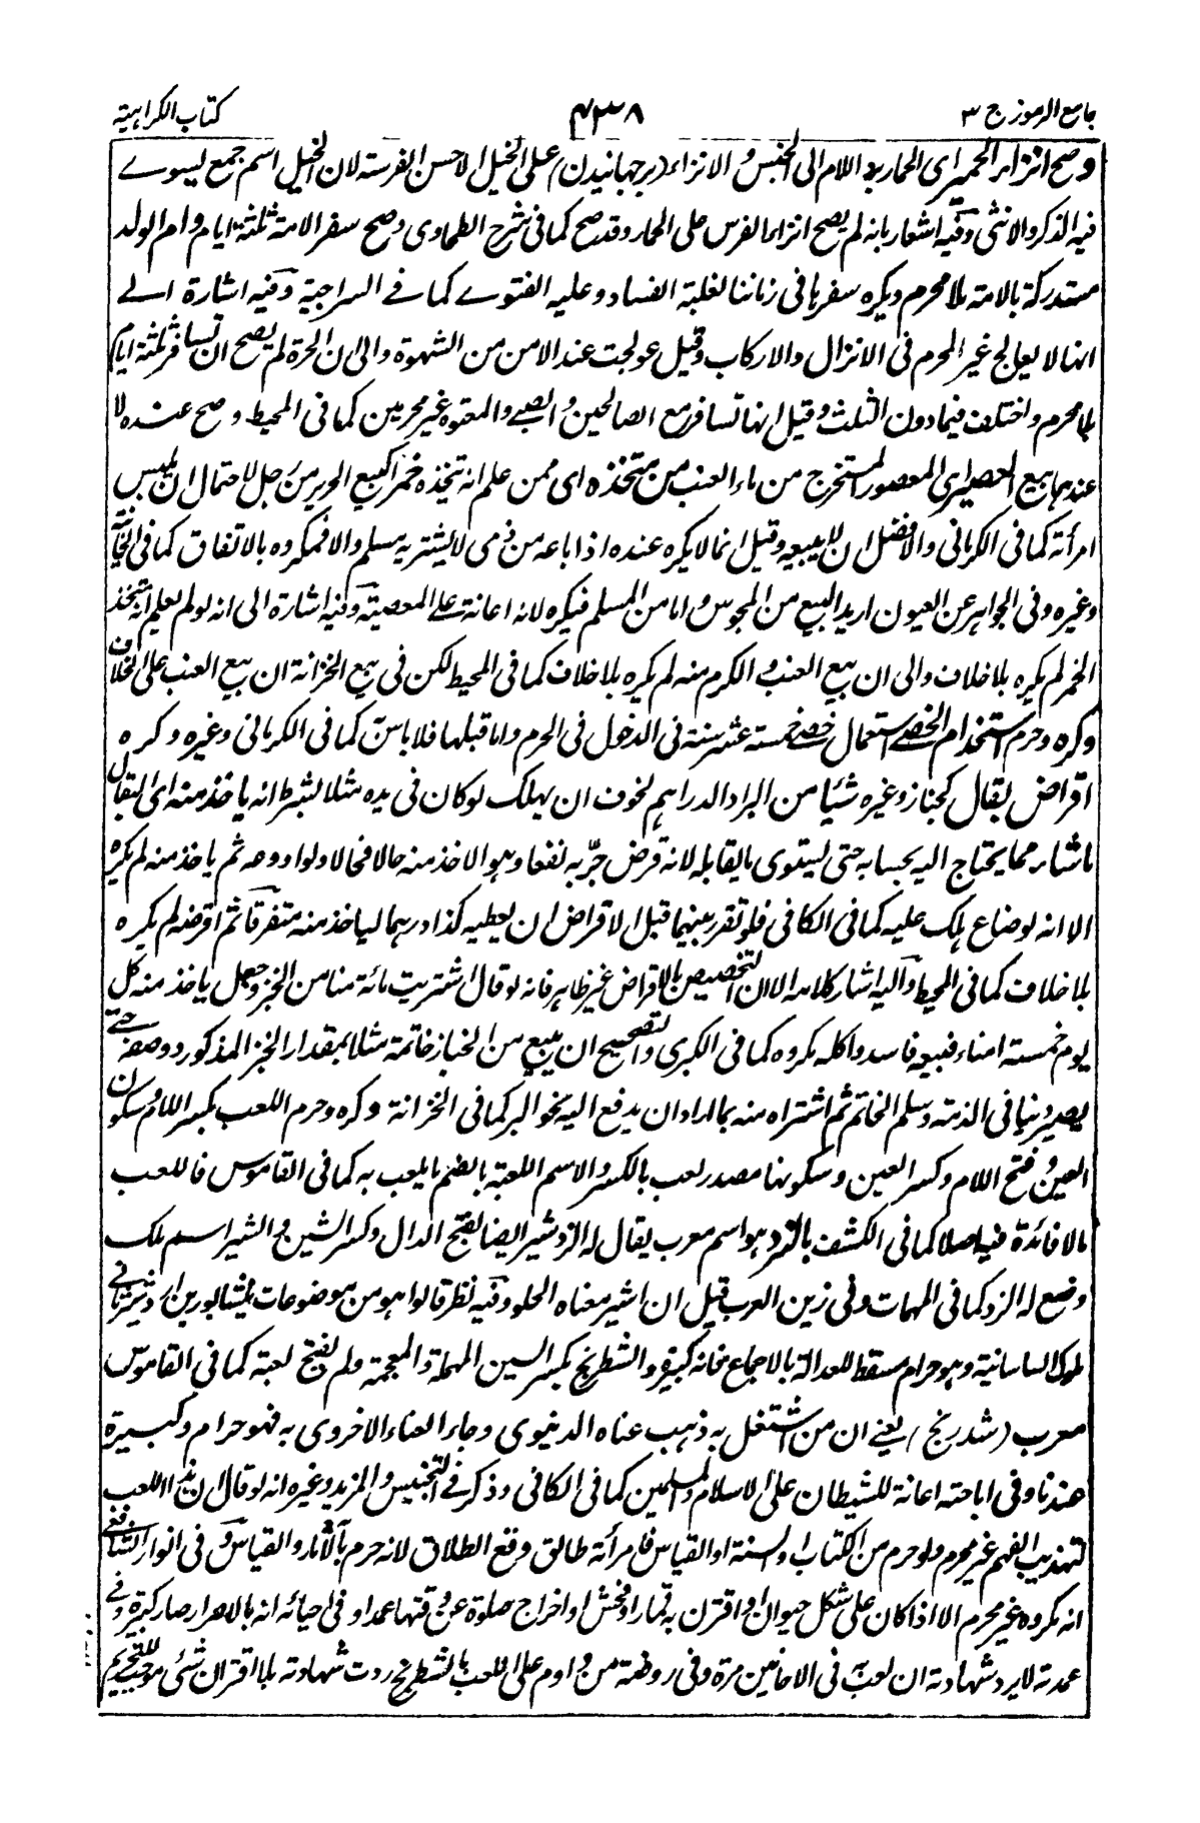 جامع الرموز ج ٣
٤٣٨
كتاب الكراهية
وصح انزاء الحمير اى الحمار بذ اللام الى الجنس والانزاء (برجهانيدن) على الخيل الاحسن الفرسة لان الخيل اسم جمع ليسوے
فيه الذكر والانثى وفيه اشعار بانه لم يصح انزاء الفرس على الحمار وقد صح كما فى شرح الطحاوى وصح سفر الامة ثلثة ايام وام الولد
مستدركة بالامة بلا محرم ويكره سفرها فى زماننا لغلبة الفساد وعليه الفتوے كما فے السراجية وفيه اشارة الے
انها لا يعالج غير المحرم فى الانزال والاركاب وقيل عولجت عند الامن من الشهوة والى ان الحرة لم يصح ان تسافر ثلثة ايام
بلا محرم واختلف فيما دون الثلث وقيل انها تسافر مع الصالحين والصبے والمعتوه غير محرمين كما فى المحيط وصح عنده لا
عندهما بيع العصير اى المعصور المستخرج من ماء العنب من متخذه اى ممن علم انه يتخذه خمرا كبيع الحرير من رجل لاحتمال ان يلبس
امرأته كما فى الكرمانى والافضل ان لا يبيعه وقيل انما لا يكره عنده اذا باعه من ذمى لا يشتريه مسلم والا فمكروه بالاتفاق كما فى
وغيره وفى الجواهر عن العيون اريد البيع من المجوس واما من المسلم فيكره لانه اعانة علے المعصية وفيه اشارة الى انه لو لم يعلم انه يتخذ
الخمر لم يكره بلا خلاف والى ان بيع العنب والكرم منه لم يكره بلا خلاف كما فى المحيط لكن فى بيع الخزانة ان بيع العنب على الخلاف
وكره وحرم استخدام الخصے استعمال خصے خمسة عشر سنة فى الدخول فى الحرم واما قبلها فلا باس كما فى الكرمانى وغيره وكره
اقراض بقال كخباز وغيره شيئا من البر او الدراهم لخوف ان يهلك لو كان فى يده مثلا بشرط انه ياخذ منه اى البقال
ما شاء مما يحتاج اليه بحسابه حتى يستوى ما يقابله لانه قرض جرّ به نفعا وهو الاخذ منه حالا فحالا ولو اودعه ثم ياخذ منه لم يكره
الا انه لو ضاع هلك عليه كما فى الكافى فلو تقرر بينهما قبل الاقراض ان يعطيه كذا درهما لياخذ منه متفرقا ثم اقرضه لم يكره
بلا خلاف كما فى المحيط واليه اشار كلامه الا ان التخصيص بالاقراض غير ظاهر فانه لو قال اشتريت مائة منا من الخبز وجعل ياخذ منه كل
يوم خمسة امناء فبيعه فاسد واكله مكروه كما فى الكبرى والصحيح ان يبيع من الخباز خاتمه مثلا بمقدار الخبز المذكور ووصفه حتے
يصير دينا فى الذمة وسلم الخاتم ثم اشتراه منه بما اراد ان يدفع اليه نحو البر كما فى الخزانة وكره وحرم اللعب بكسر اللام وسكون
العين وفتح اللام وكسر العين وسكونها مصدر لعب بالكسر والاسم اللعبة بالضم ما يلعب به كما فى القاموس فاللعب
ما لا فائدة فيه اصلا كما فى الكشف بالنرد هو اسم معرب يقال له النردشير ايضا بفتح الدال وكسر الشين والشير اسم ملك
وضع له النرد كما فى المهمات وفى زين العرب قيل ان الشير معناه الحلو وفيه نظر قالوا هو من موضوعات نيشابور بن اردشير ثانے
ملوك الساسانية وهو حرام مسقط للعدالة بالاجماع فانه كبيرة والشطرنج بكسر السين المهملة والمعجمة ولم يفتح لعبة كما فى القاموس
معرب (شدرنج) يعنے ان من اشتغل به ذهب عناه الدنيوى وجاء العناء الاخروى به فهو حرام وكبيرة
عندنا وفى اباحته اعانة للشيطان على الاسلام والمسلمين كما فى الكافى وذكر فے التجنيس والمزيد وغيره انه لو قال ان هذا اللعب
لتهذيب الفهم غير محرم ولو حرم من الكتاب والسنة او القياس فامرأته طالق وقع الطلاق لانه حرم بالاثار والقياس وفى انوار الشافعے
انه مكروه غير محرم الا اذا كان على شكل حيوان او اقترن به قمار او فحش او اخراج صلوة عن وقتها عمدا وفى احيائه انه بالاصرار صار كبيرة وفے
عمدته لا يرد شهادته ان لعب به فى الاحايين مرة وفى روضته من داوم على اللعب بالشطرنج ردت شهادته بلا اقتران شئ موجب للتحريم